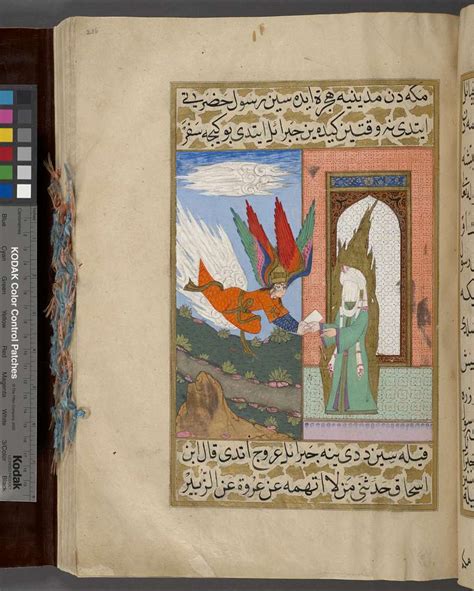 مكه دن مدينيه هجرة ايده سين رسول حضرتى
ايتدى نه وقتين كيده ين جبرائل ايتدى بو كيجه سفر
قيله سين ديدى ينه جبرائل عروج اتدى قال ابن
اسحاق حدثنى من لا اتهمه عن عروة عن الزبير
KODAK Color Control Patches
Blue
Cyan
Green
Yellow
Red
Magenta
White
3/Color
Black
Kodak